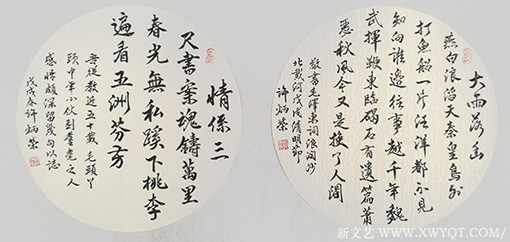 大雨落幽
燕白浪滔天秦皇島外
打魚船一片汪洋都不見
知向誰邊往事越千年魏
武揮鞭東臨碣石有遺篇蕭
瑟秋風今又是換了人間
敬書毛澤東詞浪淘沙
北戴河戊戌清明節
許炳榮
情係三
尺書案魂鑄萬里
春光無私蹊下桃李
遍看五洲芬芳
吾從教近五十載毛頭丫
頭中年小伙到耄耋之人
感悟頗深留幾句以誌
戊戌春許炳榮
新文艺 WWW.XWYQT.COM/